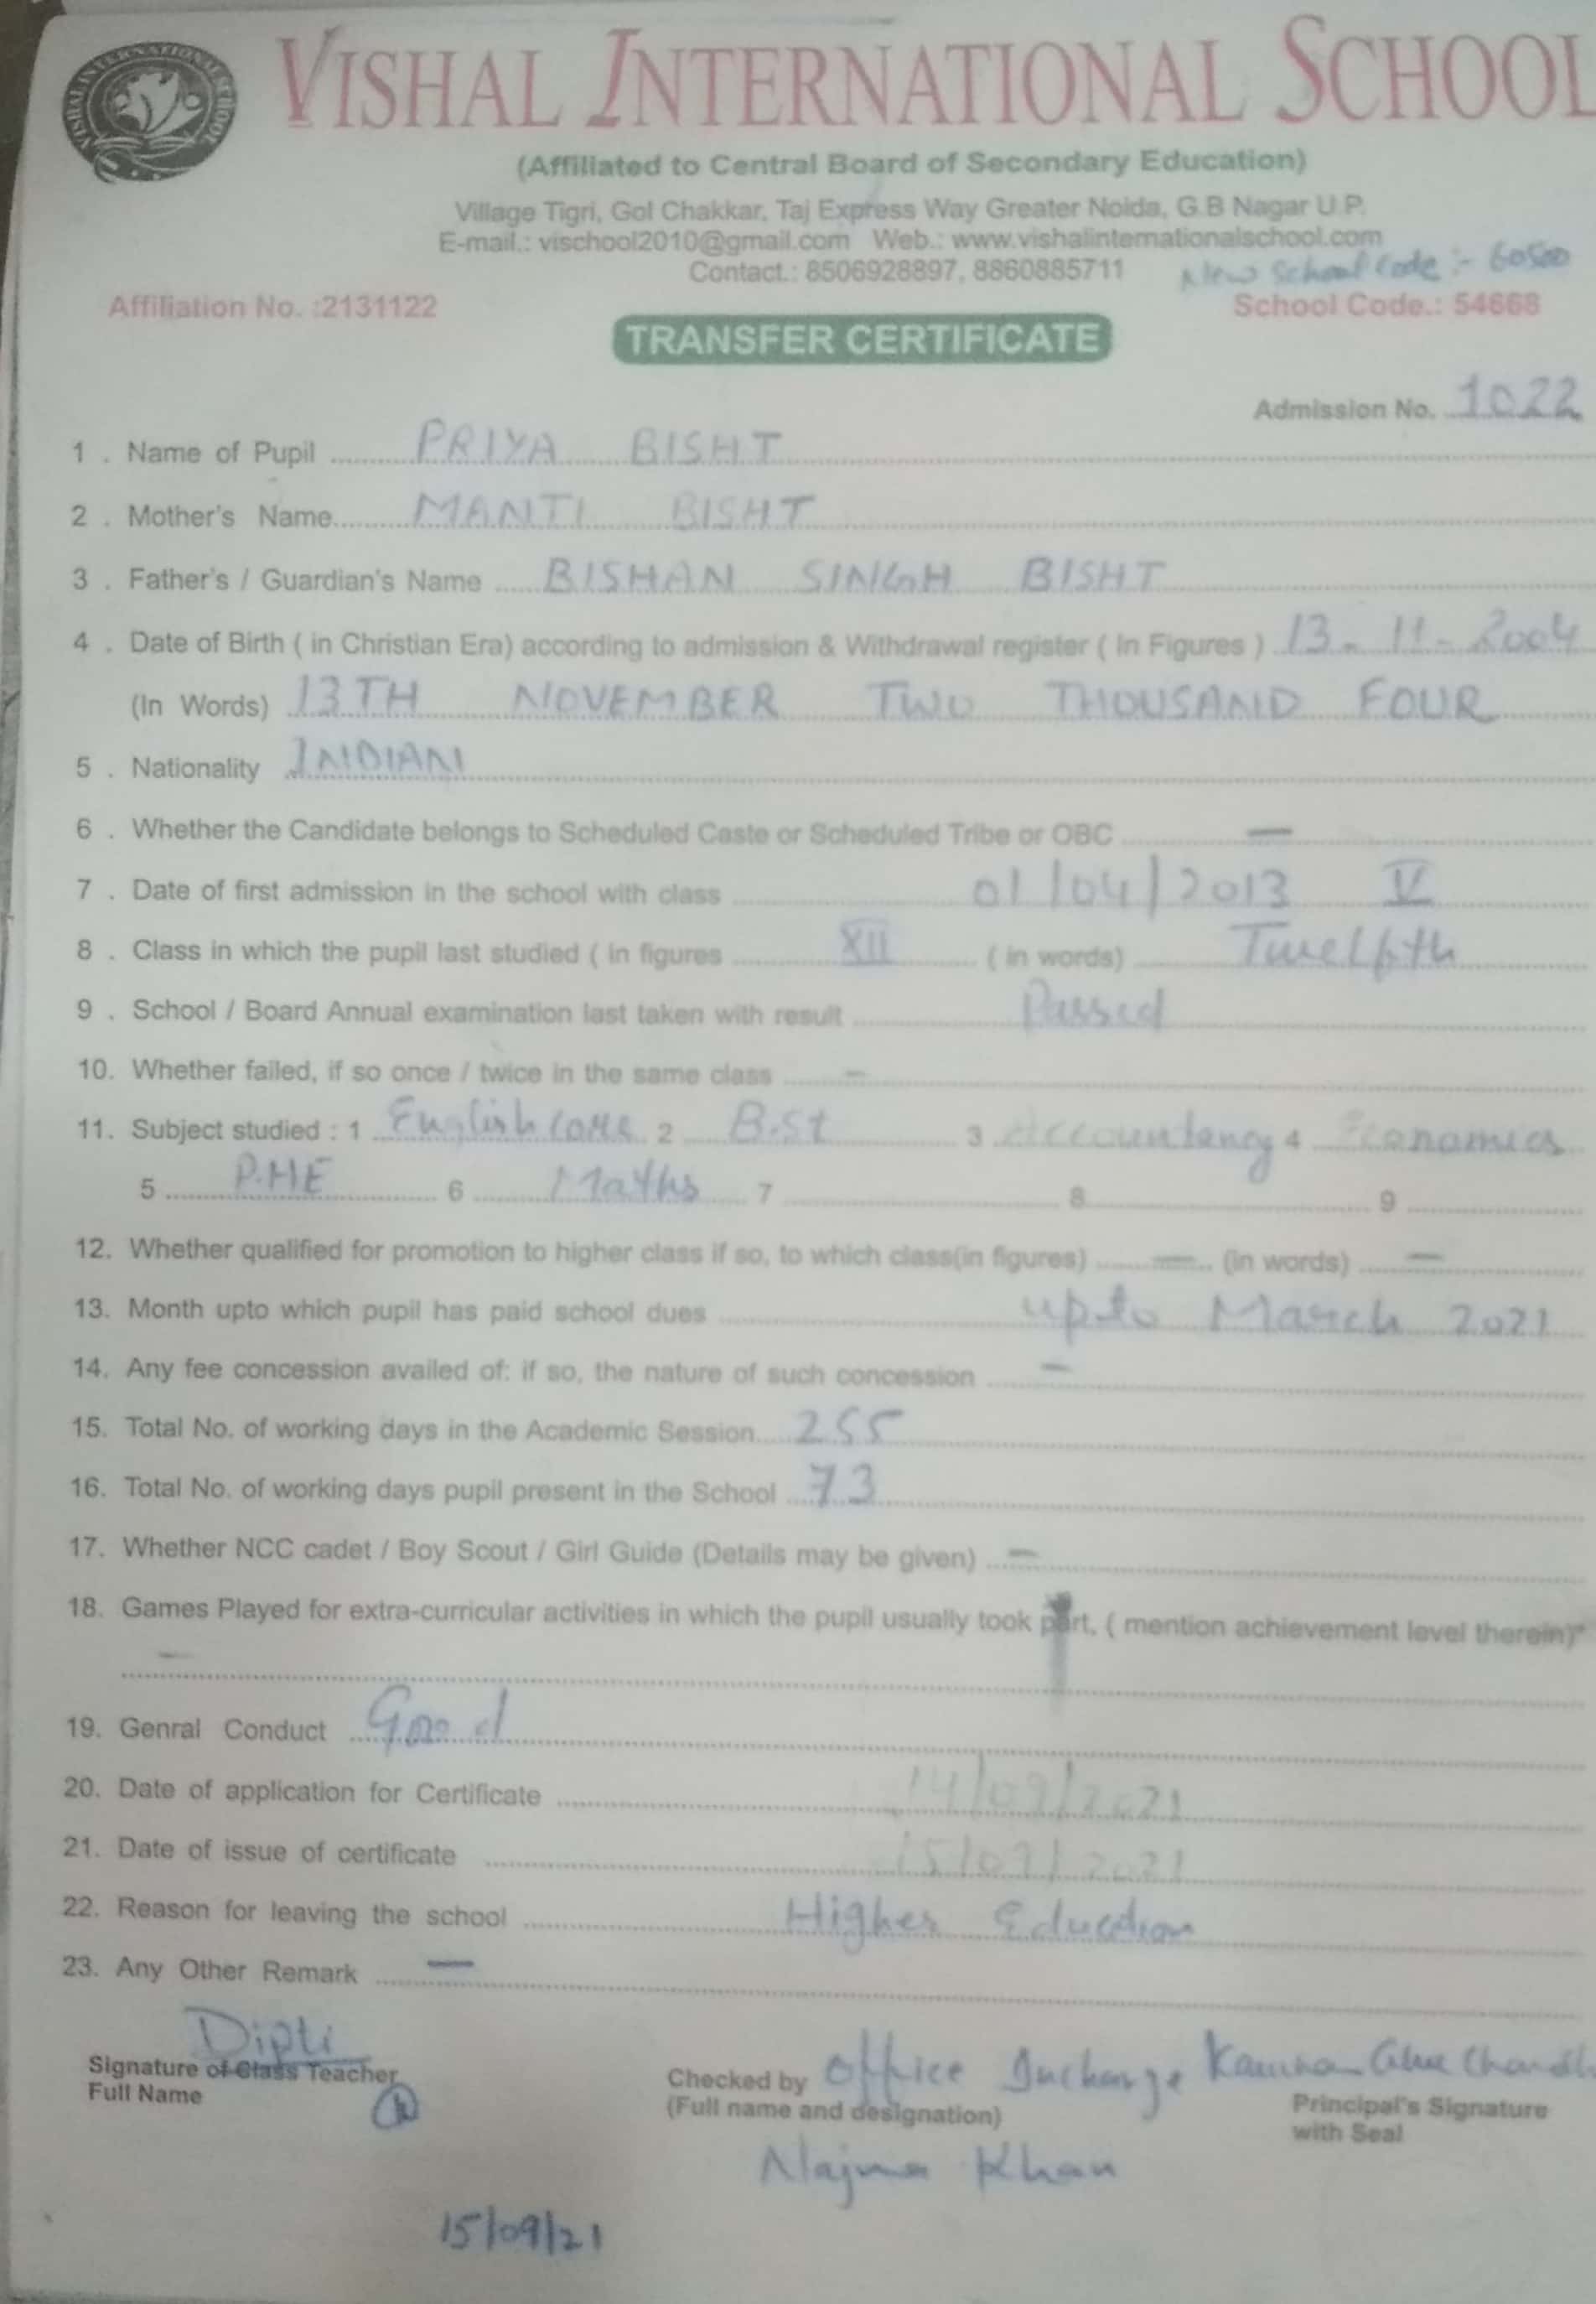 VISHAL INTERNATIONAL SCHOOL
VISHAL INTERNATIONAL SCHOOL
(Affiliated to Central Board of Secondary Education)
Village Tigri, Gol Chakkar, Taj Express Way Greater Noida, G.B Nagar U.P.
E-mail.: vischool2010@gmail.com Web.: www.vishalinternationalschool.com
Contact.: 8506928897, 8860885711 New School Code :- 60500
Affiliation No. :2131122 School Code.: 54668
TRANSFER CERTIFICATE
Admission No. 1022
1 . Name of Pupil PRIYA BISHT
2 . Mother's Name MANTI BISHT
3 . Father's / Guardian's Name BISHAN SINGH BISHT
4 . Date of Birth ( in Christian Era) according to admission & Withdrawal register ( In Figures ) 13 - 11 - 2004
(In Words) 13TH NOVEMBER TWO THOUSAND FOUR
5 . Nationality INDIAN
6 . Whether the Candidate belongs to Scheduled Caste or Scheduled Tribe or OBC —
7 . Date of first admission in the school with class 01/04/2013 V
8 . Class in which the pupil last studied ( in figures XII ( in words) Twelfth
9 . School / Board Annual examination last taken with result Passed
10. Whether failed, if so once / twice in the same class –
11. Subject studied : 1 English core 2 B.St 3 Accountancy 4 Economics
5 P.HE 6 Maths 7 8 9
12. Whether qualified for promotion to higher class if so, to which class(in figures) — (in words) —
13. Month upto which pupil has paid school dues upto March 2021
14. Any fee concession availed of: if so, the nature of such concession –
15. Total No. of working days in the Academic Session 255
16. Total No. of working days pupil present in the School 73
17. Whether NCC cadet / Boy Scout / Girl Guide (Details may be given) –
18. Games Played for extra-curricular activities in which the pupil usually took part, ( mention achievement level therein)*
–
19. Genral Conduct Good
20. Date of application for Certificate 14/09/2021
21. Date of issue of certificate 15/09/2021
22. Reason for leaving the school Higher Education
23. Any Other Remark —
Dipti
Signature of Class Teacher Checked by Office Incharge
Full Name (Full name and designation) Principal's Signature
with Seal
Najma Khan
15/09/21